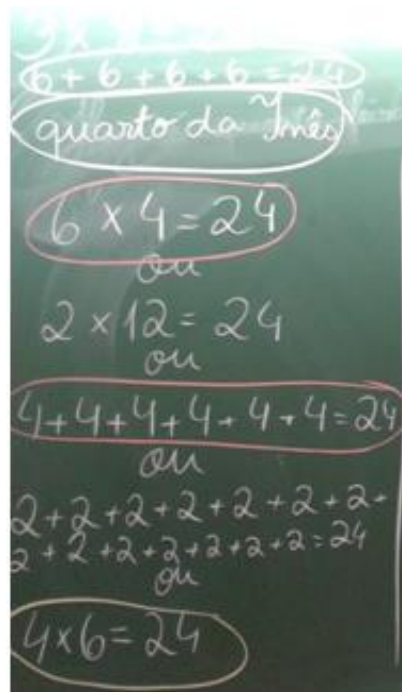 3 ×
6+6+6+6=24
quarto da Inês
6 × 4 = 24
ou
2 × 12 = 24
ou
4+4+4+4+4+4=24
ou
2+2+2+2+2+2+2+
2+2+2+2+2+2+2=24
ou
4×6=24